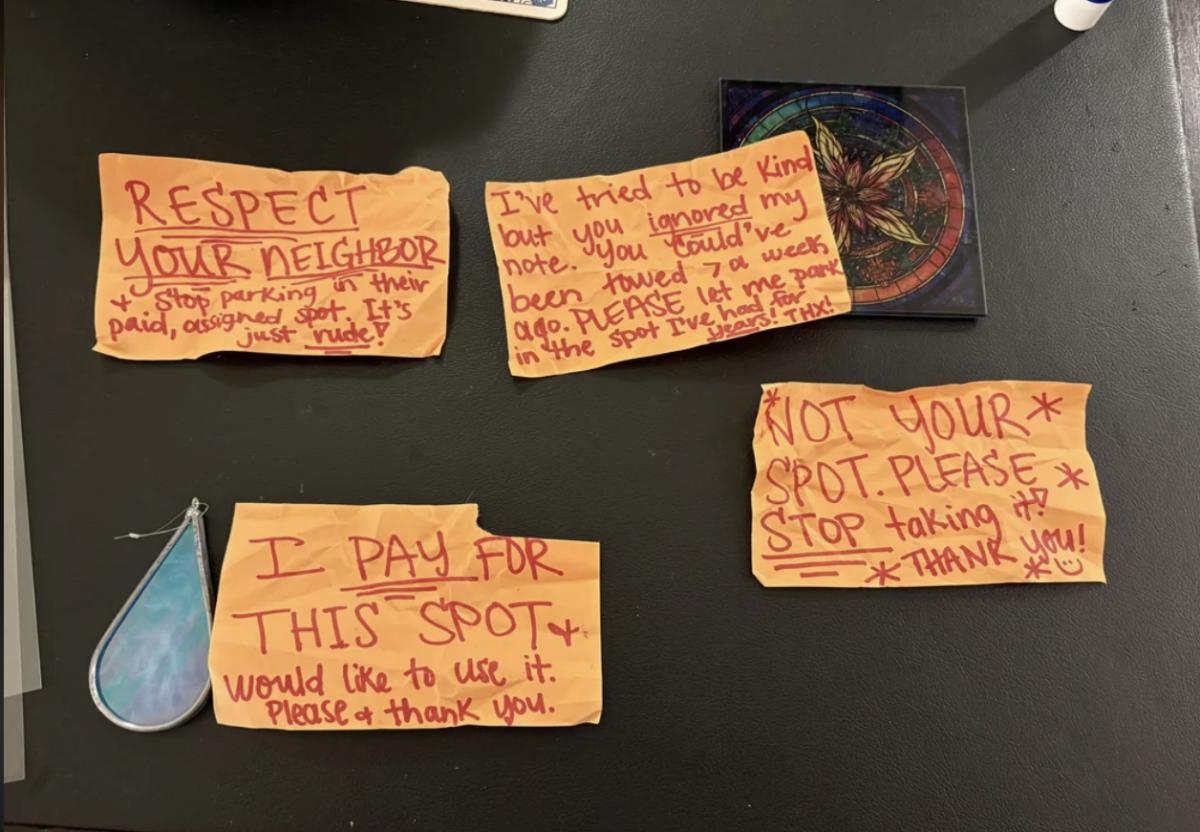 RESPECT
YOUR NEIGHBOR
+ Stop parking in their
paid, assigned spot. It's
just rude!
I've tried to be kind
but you ignored my
note. You could've
been towed > a week
ago. PLEASE let me park
in the spot I've had for
years! THX!
*NOT YOUR*
SPOT. PLEASE *
STOP taking it!
* THANK you! *
I PAY FOR
THIS SPOT +
would like to use it.
Please + thank you.